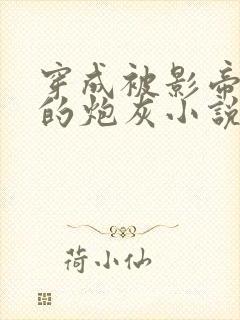 穿成被影帝
的炮灰小説
荷小仙